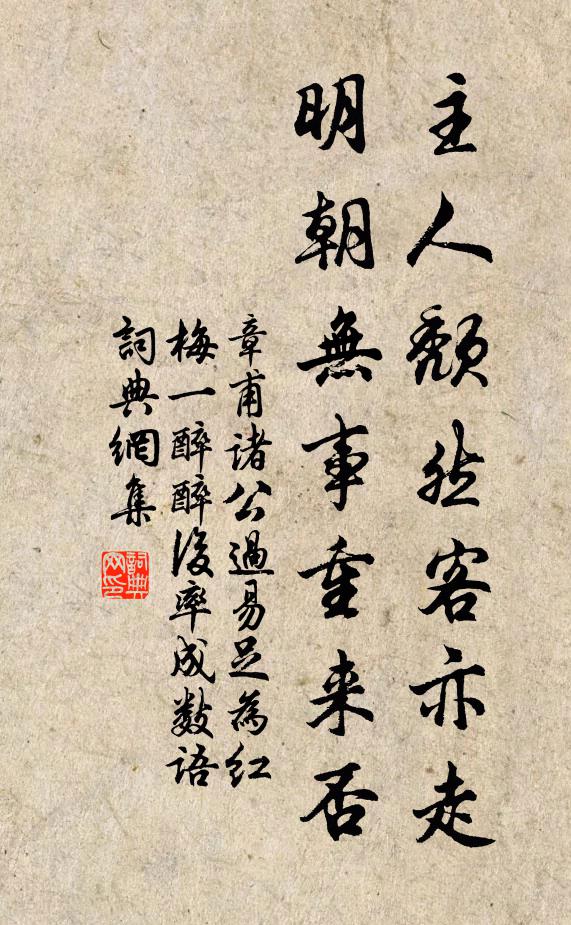 主人頹然客亦走
明朝無事重来否
章甫诸公過易足為红
梅一醉醉後率成數语
詞典網集
詞典网印